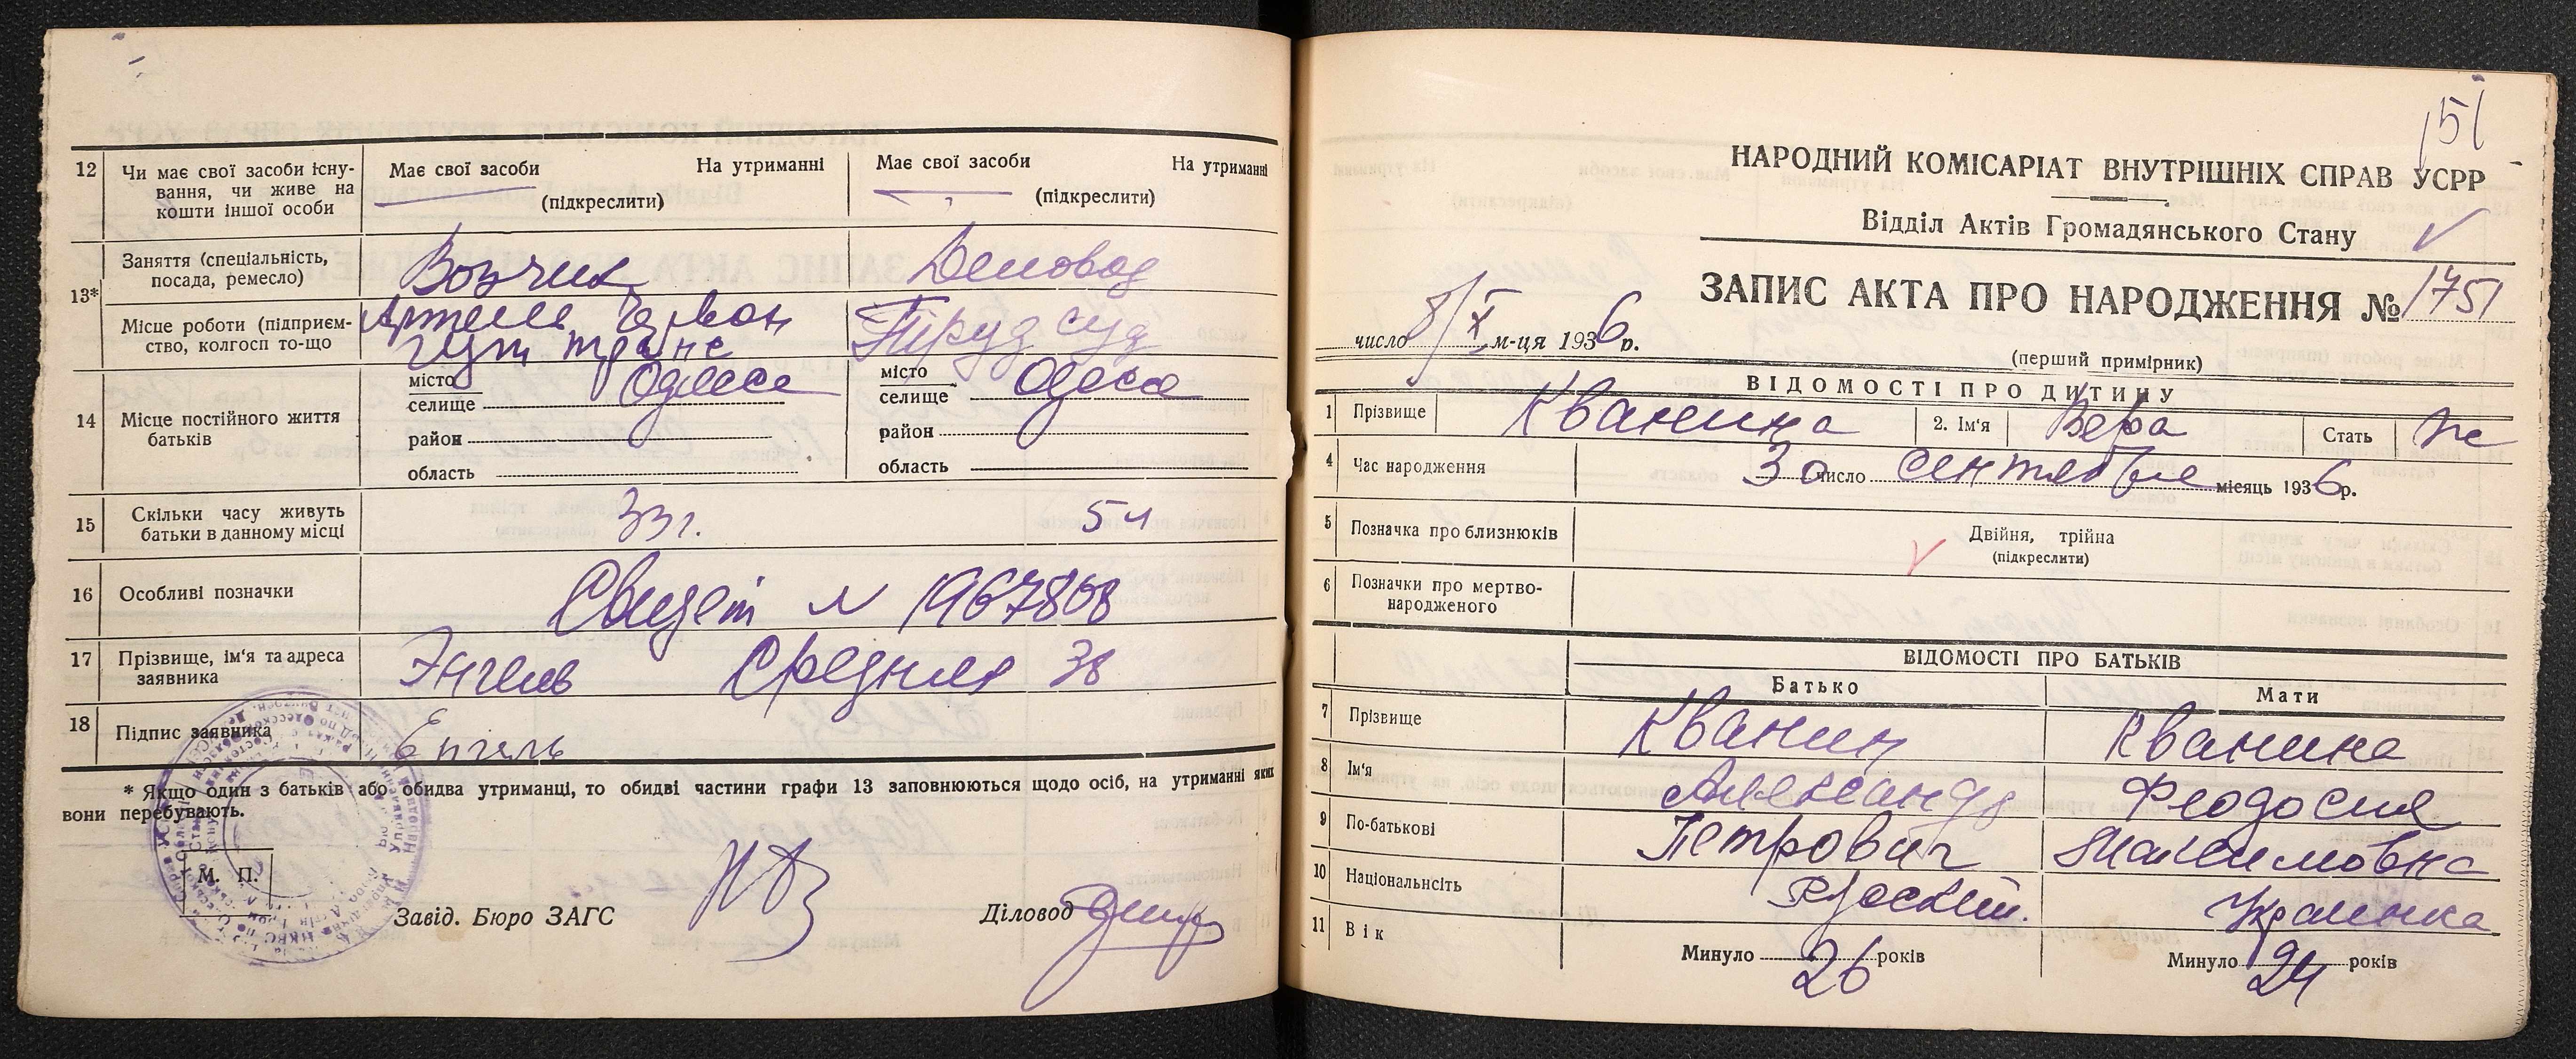 12 Чи має свої засоби існу-
вання, чи живе на
кошти іншої особи
Має свої засоби На утриманні
(підкреслити)
Має свої засоби На утриманні
(підкреслити)
13* Заняття (спеціальність,
посада, ремесло)
Возчик
Деловод
Місце роботи (підприєм-
ство, колгосп то-що
Артель Червон
гуж транс
Труд суд
14 Місце постійного життя
батьків
місто Одесса
селище
район
область
місто Одеса
селище
район
область
15 Скільки часу живуть
батьки в данному місці
33 г.
5 л
16 Особливі позначки
Свидет N 1967868
17 Прізвище, ім'я та адреса
заявника
Энгель Средняя 38
18 Підпис заявника
Енгель
* Якщо один з батьків або обидва утриманці, то обидві частини графи 13 заповнюються щодо осіб, на утриманні яких
вони перебувають.
М. П.
Завід. Бюро ЗАГС
Діловод
151
НАРОДНИЙ КОМІСАРІАТ ВНУТРІШНІХ СПРАВ УСРР
Відділ Актів Громадянського Стану
ЗАПИС АКТА ПРО НАРОДЖЕННЯ № 1751
число 8/X м-ця 1936 р.
(перший примірник)
ВІДОМОСТІ ПРО ДИТИНУ
1 Прізвище Кванина 2. Ім'я Вера Стать ж
4 Час народження 30 число сентября місяць 1936 р.
5 Позначка про близнюків
Двійня, трійна
(підкреслити)
6 Позначки про мертво-
народженого
ВІДОМОСТІ ПРО БАТЬКІВ
Батько Мати
7 Прізвище Кванин Кванина
8 Ім'я Александр Феодосия
9 По-батькові Петрович Максимовна
10 Національність Русский. Украинка
11 Вік Минуло 26 років Минуло 24 років